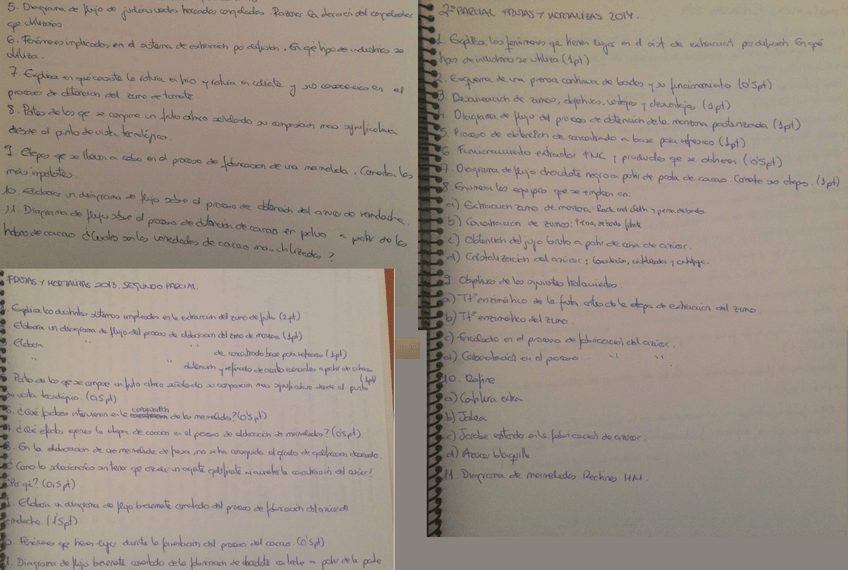 5. Diagrama de flujo de judías verdes troceadas congeladas. Razona la elección del congelador
que utilizarías
6. Fenómenos implicados en el sistema de extracción por difusión. En qué tipo de industrias se
utiliza.
7. Explica en qué consiste la rotura en frío y rotura en caliente y sus consecuencias en el
proceso de obtención del zumo de tomate.
8. Partes de las que se compone un fruto cítrico señalando su composición más significativa
desde el punto de vista tecnológico.
9. Etapas que se llevan a cabo en el proceso de fabricación de una mermelada. Comenta las
más importantes.
10. Elaborar un diagrama de flujo sobre el proceso de obtención del azúcar de remolacha.
11. Diagrama de flujo sobre el proceso de obtención de cacao en polvo a partir de las
habas de cacao ¿Cuáles son las variedades de cacao más utilizadas?
FRUTAS Y HORTALIZAS 2013. SEGUNDO PARCIAL.
Explica los distintos sistemas empleados en la extracción del zumo de fruta (2pt)
Elabora un diagrama de flujo del proceso de elaboración del zumo de manzana (1pt)
Elabora " " de concentrado base para refrescos (1pt)
" " obtención y refinado de aceites esenciales a partir de cítricos
(1pt)
Partes de las que se compone un fruto cítrico señalando su composición más significativa desde el punto
de vista tecnológico. (0,5pt)
¿Qué factores intervienen en la composición de las mermeladas? (0'5pt)
¿Qué efectos ejerce la etapa de cocción en el proceso de elaboración de mermeladas? (0'5pt)
En la elaboración de una mermelada de fresa, no se ha conseguido el grado de gelificación deseado.
¿Cómo lo solucionarías sin tener que añadir un agente gelificante ni aumentar la concentración del azúcar?
¿Por qué? (0,5pt)
Elabora un diagrama de flujo brevemente comentado del proceso de fabricación del azúcar de
remolacha. (1'5pt)
Fenómenos que tienen lugar durante la fermentación del proceso del cacao. (0'5pt)
Diagrama de flujo brevemente comentado de la fabricación de chocolate con leche a partir de la pasta
2º PARCIAL FRUTAS Y HORTALIZAS 2014.
1. Explica los fenómenos que tienen lugar en el sist de extracción por difusión. En qué
tipo de industrias se utiliza (1pt)
2. Esquema de una prensa continua de bandas y su funcionamiento (0'5pt)
3. Desaireación de zumos, objetivos, ventajas y desventajas (1pt)
4. Diagrama de flujo del proceso de obtención de la manzana pasteurizada (1pt)
5. Proceso de obtención de concentrado a base para refresco (1pt)
6. Funcionamiento extractor FMC y productos que se obtienen (0'5pt)
7. Diagrama de flujo chocolate negro a partir de pasta de cacao. Comenta sus etapas. (1pt)
8. Enumera los equipos que se emplean en:
a) Extracción zumo de manzana: Rack and cloth y prensa de bandas
b) Clarificación de zumos:
c) Obtención del jugo bruto a partir de caña de azúcar.
d) Cristalización del azúcar:
9. Objetivos de los siguientes tratamientos.
a) Tto enzimático de la fruta antes de la etapa de extracción del zumo.
b) Tto enzimático del zumo.
c) Encalado en el proceso de fabricación del azúcar.
d) Carbonatación en el proceso " "
10. Define
a) Confitura extra
b) Jalea
c) Jarabe estándar en la fabricación de azúcar.
d) Azúcar blanquilla
11. Diagrama de mermeladas Pectina HM.